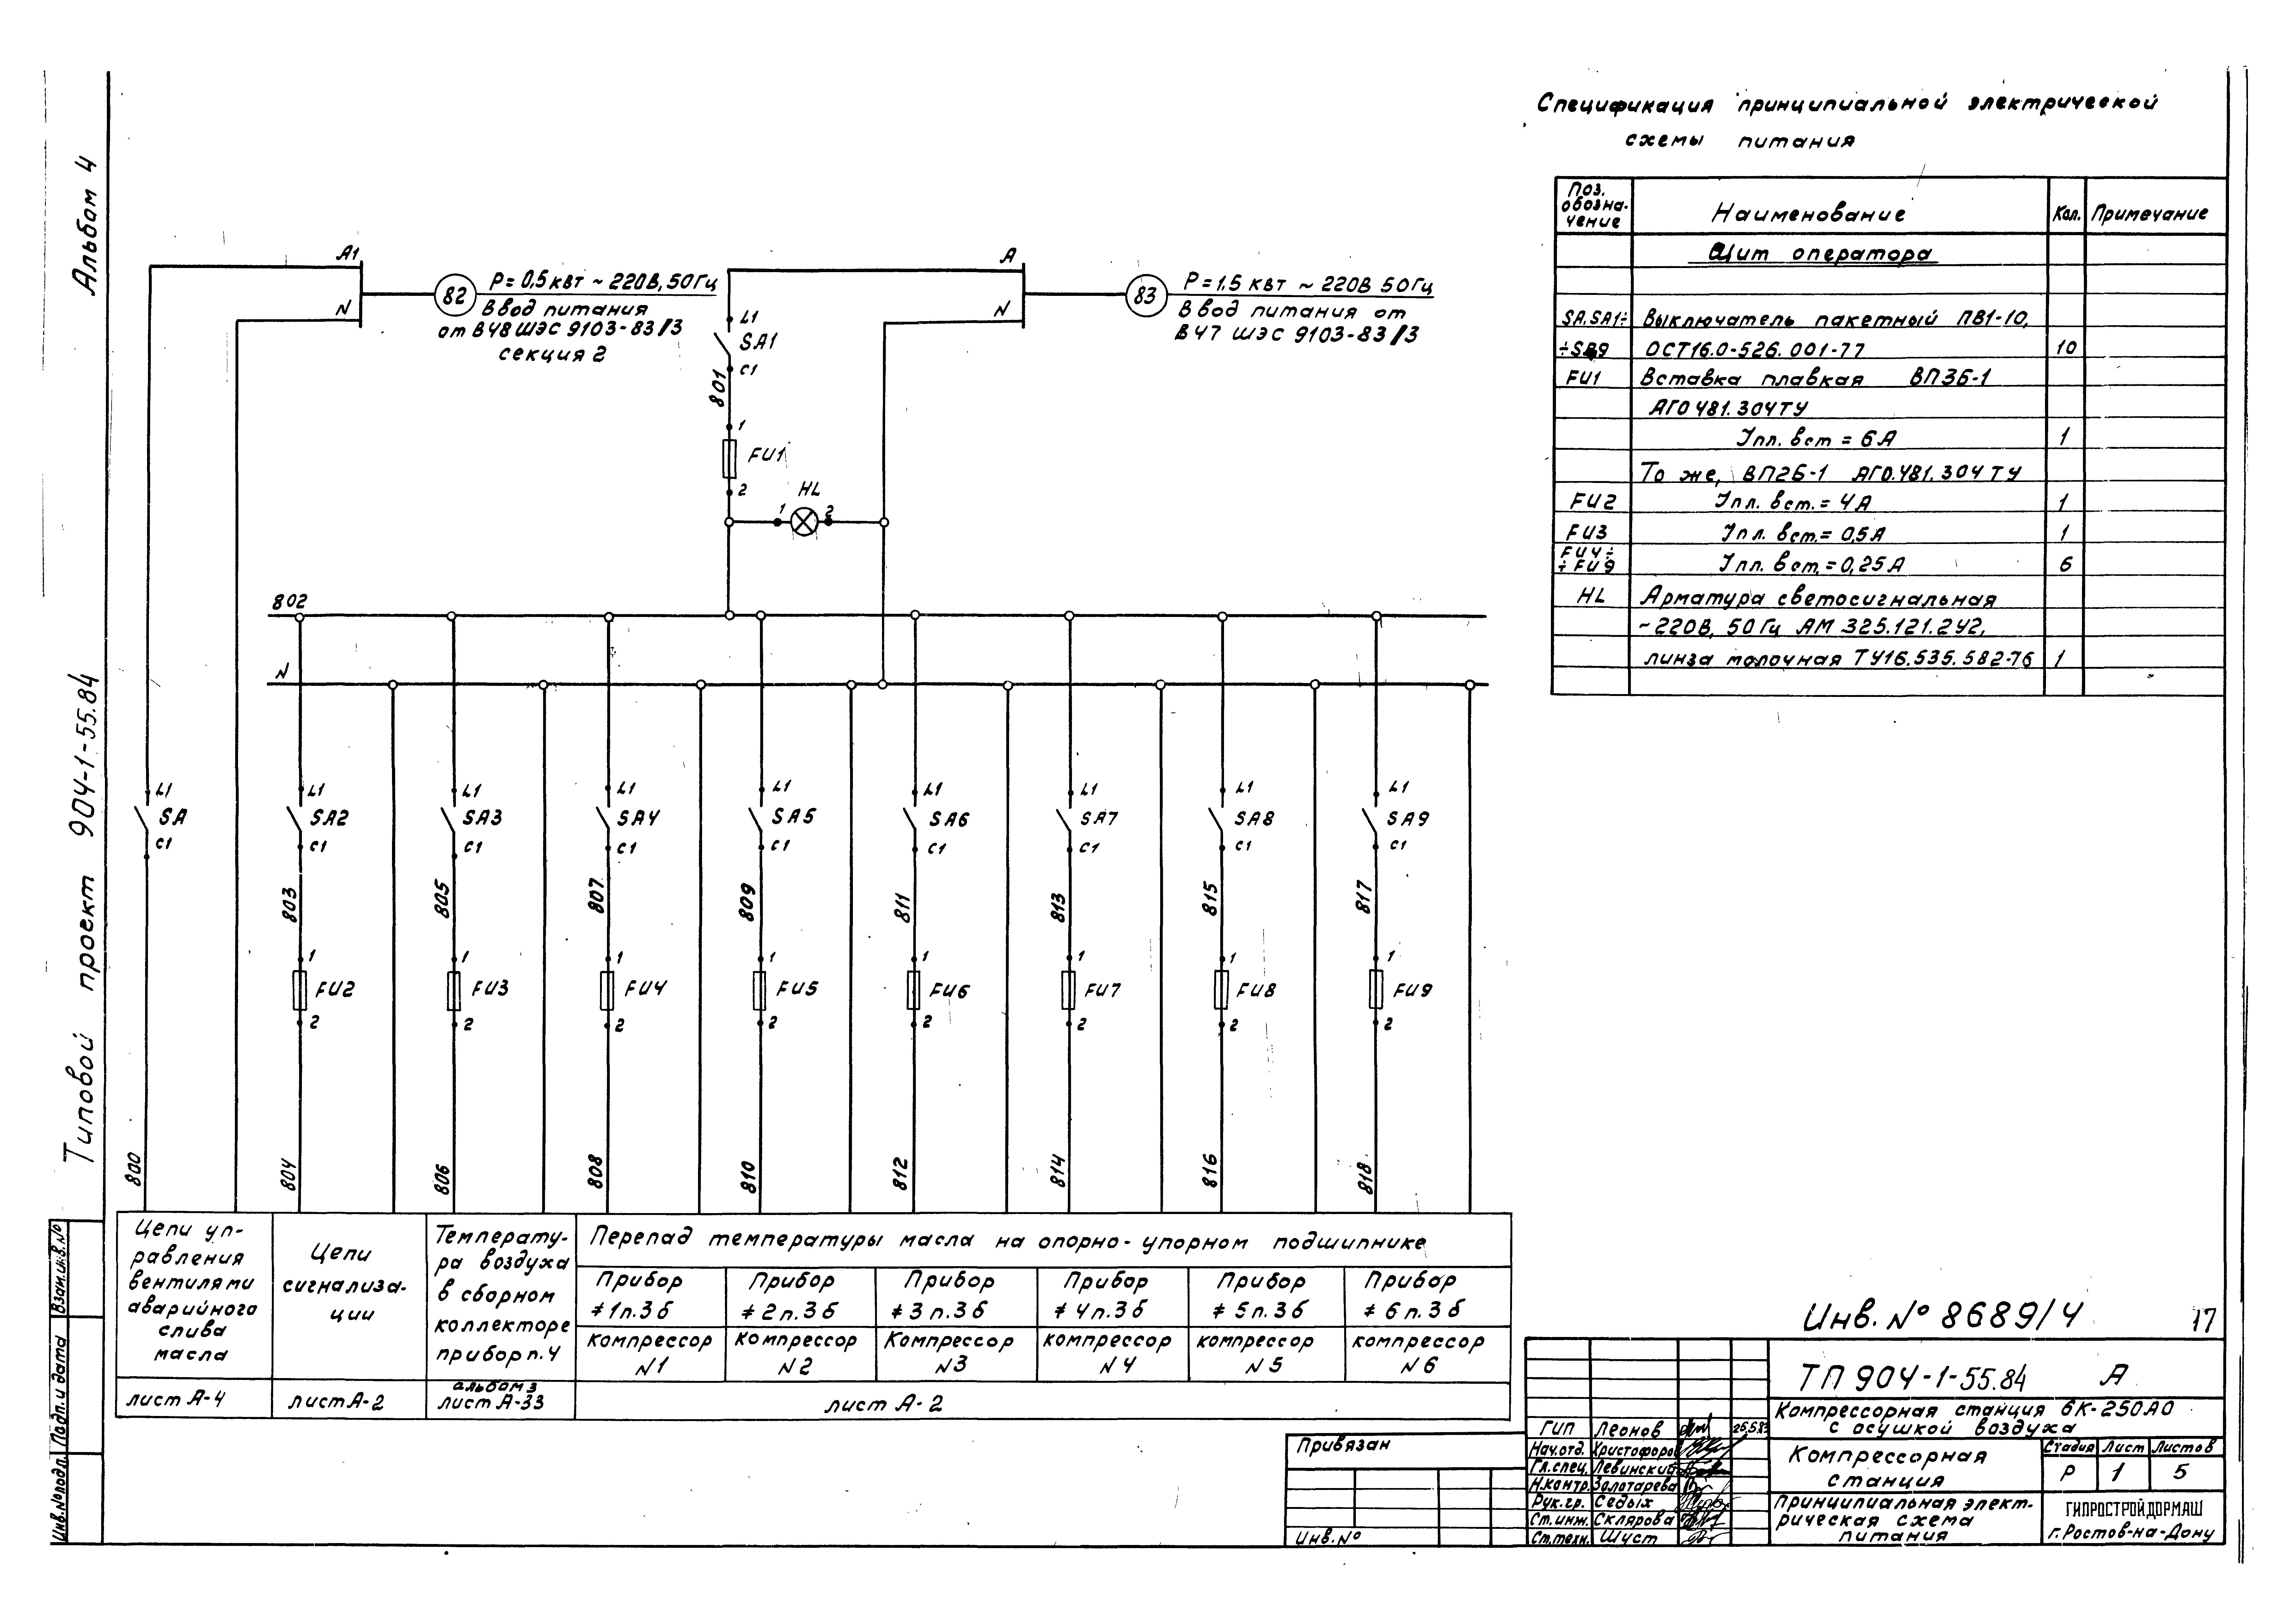 Альбом 4
Типовой проект 904-1-55.84
Взам.инв.№
Подп. и дата
Инв.№подл.
A1
N
82
P= 0,5 квт ~ 220В, 50Гц
Ввод питания
от В48 ШЭС 9103-83/3
секция 2
A
N
83
P=1,5 квт ~ 220В 50Гц
Ввод питания от
В47 ШЭС 9103-83/3
L1
SA1
C1
801
1
FU1
2
HL
1
2
802
N
L1
SA
C1
L1
SA2
C1
L1
SA3
C1
L1
SA4
C1
L1
SA5
C1
L1
SA6
C1
L1
SA7
C1
L1
SA8
C1
L1
SA9
C1
803
805
807
809
811
813
815
817
1
FU2
2
1
FU3
2
1
FU4
2
1
FU5
2
1
FU6
2
1
FU7
2
1
FU8
2
1
FU9
2
800
804
806
808
810
812
814
816
818
Цепи уп-
равления
вентилями
аварийного
слива
масла
лист А-4
Цепи
сигнализа-
ции
лист А-2
Температу-
ра воздуха
в сборном
коллекторе
прибор п.4
альбом 3
лист А-33
Перепад температуры масла на опорно-упорном подшипнике
Прибор
≠ 1п.3б
компрессор
N1
Прибор
≠ 2п.3б
компрессор
N2
Прибор
≠ 3п.3б
Компрессор
N3
Прибор
≠ 4п.3б
компрессор
N4
Прибор
≠ 5п.3б
компрессор
N5
Прибор
≠ 6п.3б
компрессор
N6
лист А-2
Спецификация принципиальной электрической
схемы питания
Поз. обозна- чение Наименование Кол. Примечание
Щит оператора
SA.SA1÷ Выключатель пакетный ПВ1-10,
÷SA9 ОСТ16.0-526.001-77 10
FU1 Вставка плавкая ВП3Б-1
АГ0 481.304ТУ
Iпл. вст = 6А 1
То же, ВП2Б-1 АГ0.481.304 ТУ
FU2 Iпл. вст. = 4А 1
FU3 Iпл. вст.= 0,5А 1
FU4÷
÷ FU9 Iпл. вст.=0,25А 6
HL Арматура светосигнальная
~220В, 50Гц АМ 325.121.2У2,
линза молочная ТУ16.535.582-76 1
Инв.№ 8689/4
17
Привязан
Инв.№
ТП 904-1-55.84 А
Компрессорная станция 6К-250А0
с осушкой воздуха
Компрессорная
станция
Стадия Лист Листов
Р 1 5
Принципиальная элект-
рическая схема
питания
ГИПРОСТРОЙДОРМАШ
г.Ростов-на-Дону
ГИП Леонов
Нач.отд. Христофоров
Гл.спец. Левинский
Н.контр. Золотарева
Рук.гр. Седых
Ст.инж. Склярова
Ст.техн. Шуст